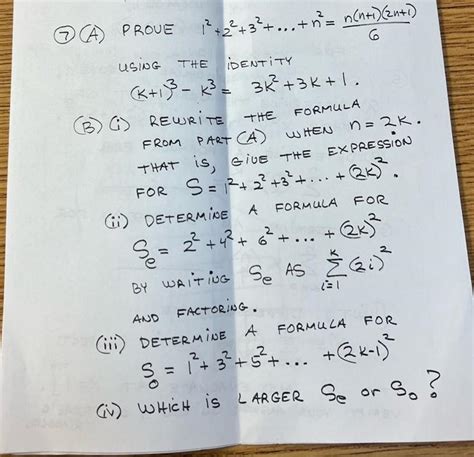 ⑦ (A) PROVE 1² + 2² + 3² + ... + n² = n(n+1)(2n+1)/6
USING THE IDENTITY
(k+1)³ - k³ = 3k² + 3k + 1.
(B) (i) REWRITE THE FORMULA
FROM PART (A) WHEN n = 2k.
THAT IS, GIVE THE EXPRESSION
FOR S = 1² + 2² + 3² + ... + (2k)².
(ii) DETERMINE A FORMULA FOR
Se = 2² + 4² + 6² + ... + (2k)²
BY WRITING Se AS Σ_{i=1}^{k} (2i)²
AND FACTORING.
(iii) DETERMINE A FORMULA FOR
So = 1² + 3² + 5² + ... + (2k-1)²
(iv) WHICH IS LARGER Se or So?